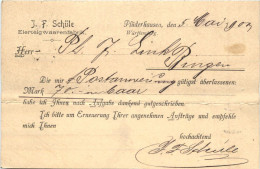 J. F. Schüle
Eierteigwaarenfabrik
Plüderhausen, den 5 Mai 1900
Württemberg.
Herrn Ph. J. Link
Bingen
Die mir p. Postanweisung gütigst überlassenen
Mark 70.— in baar
habe ich Ihnen nach Aufgabe dankend gutgeschrieben.
Ich bitte um Erneuerung Ihrer angenehmen Aufträge und empfehle
mich Ihnen
hochachtend
J. F. Schüle